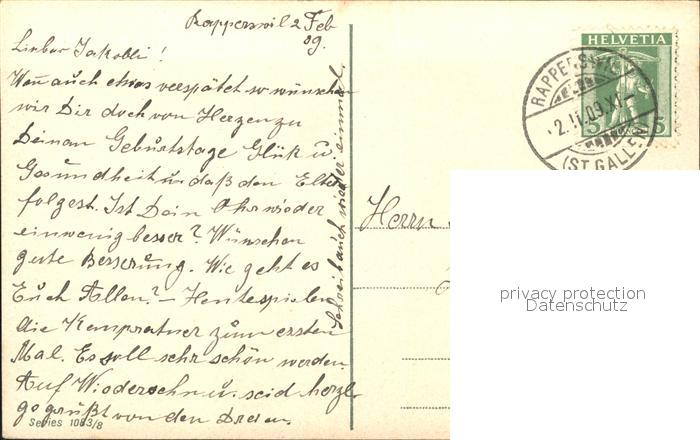 Rapperswil 2 Feb
09.
Lieber Jakobli!
Wen auch etwas verspätet so wünschen
wir Dir doch von Herzen zu
Deinen Geburtstage Glük u.
Gesundheit u. daß den Elter
folgest. Ist Dein Ohr wieder
einwenig besser? Wünschen
gute Besserung. Wie geht es
Euch Allen? – Heute spielen
die Kempratner zum ersten
Mal. Es soll sehr schön werden.
Auf Wiedersehn u. seid herzl.
gegrüßt von den Dreien.
Schreib auch wieder einmal.
Series 1083/8
HELVETIA
5 5
RAPPERSWIL
2.II.09.XI–
(ST. GALLEN)
Herrn
privacy protection
Datenschutz